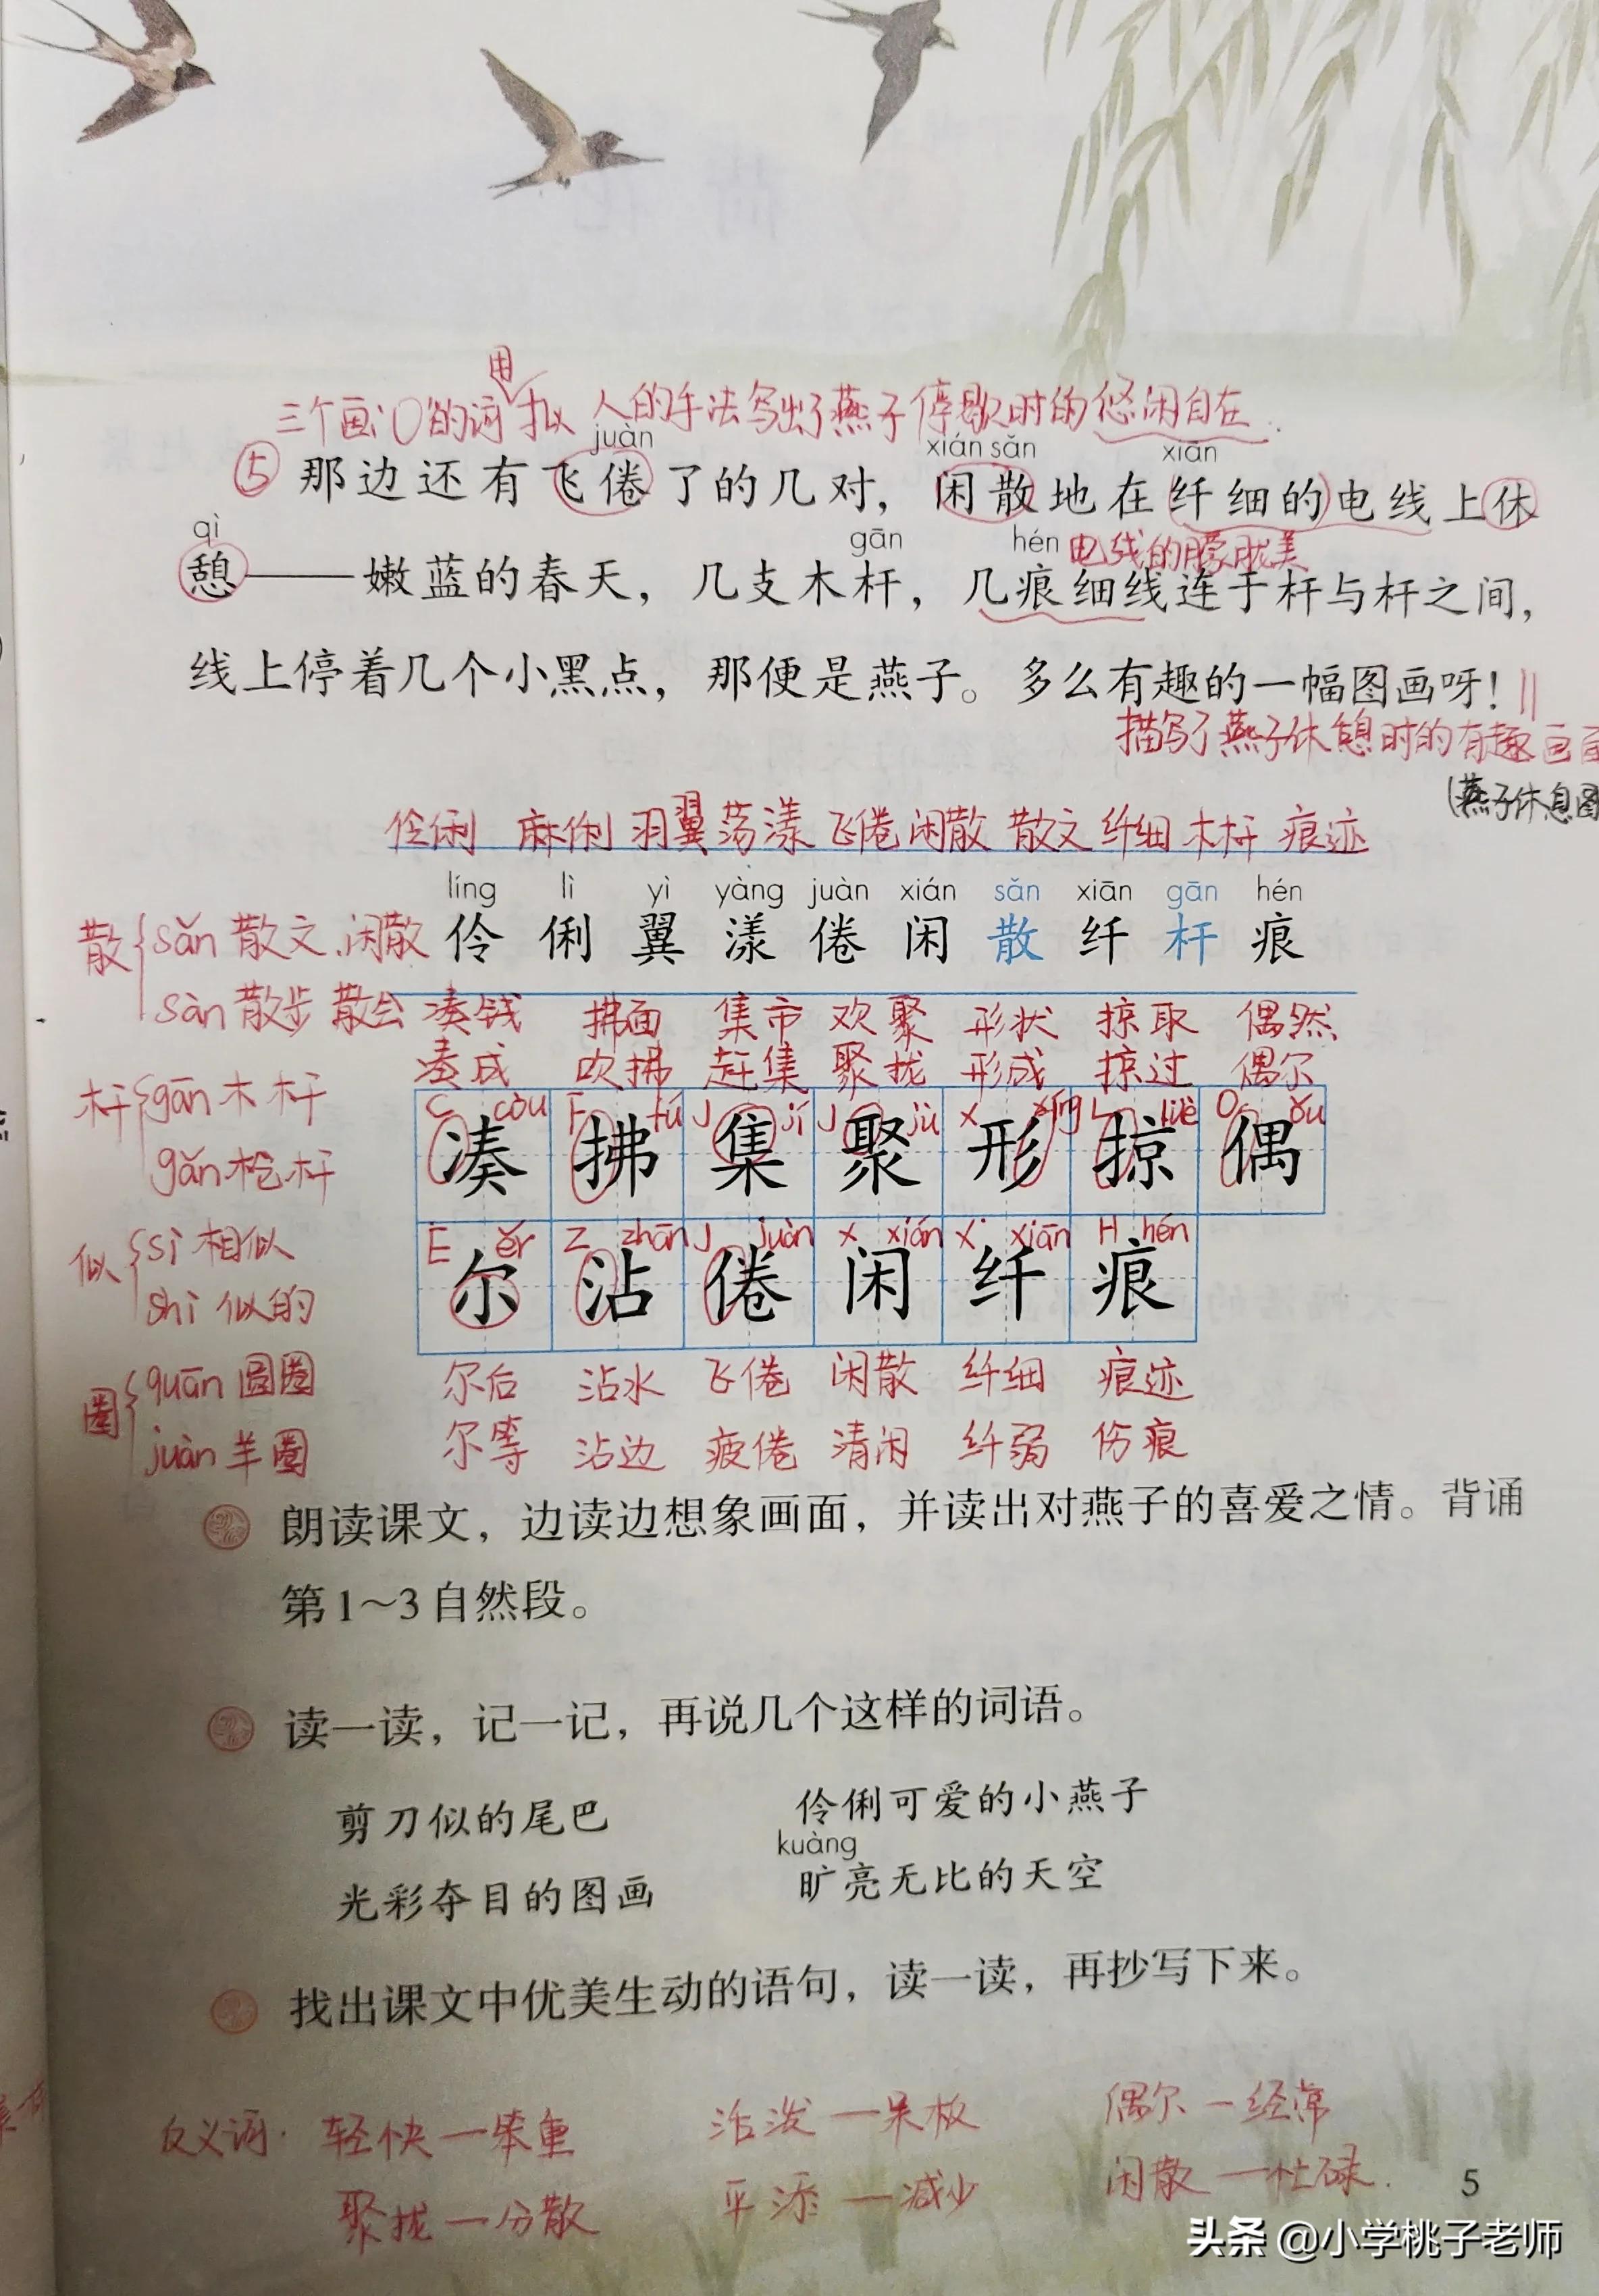 用
三个画心的词拟人的手法写出了燕子停歇时的悠闲自在.
juàn xián sǎn xiān
⑤那边还有飞倦了的几对，闲散地在纤细的电线上休
qì gān hén 电线的朦胧美
憩——嫩蓝的春天，几支木杆，几痕细线连于杆与杆之间，
线上停着几个小黑点，那便是燕子。多么有趣的一幅图画呀！||
描写了燕子休息时的有趣画面
(燕子休息图
伶俐 麻俐 羽翼 荡漾 飞倦 闲散 散文 纤细 木杆 痕迹
líng lì yì yàng juàn xián sǎn xiān gān hén
散 sǎn 散文、闲散
伶 俐 翼 漾 倦 闲 散 纤 杆 痕
sàn 散步 散会
凑钱 拂面 集市 欢聚 形状 掠取 偶然
凑成 吹拂 赶集 聚拢 形成 掠过 偶尔
杆 gān 木杆
gǎn 枪杆
C còu F fú J jí J jù X xíng L lüè O ǒu
凑 拂 集 聚 形 掠 偶
似 sì 相似
shì 似的
E ěr Z zhān J juàn X xián X xiān H hén
尔 沾 倦 闲 纤 痕
圈 quān 圆圈
juàn 羊圈
尔后 沾水 飞倦 闲散 纤细 痕迹
尔等 沾边 疲倦 清闲 纤弱 伤痕
朗读课文，边读边想象画面，并读出对燕子的喜爱之情。背诵
第1～3自然段。
读一读，记一记，再说几个这样的词语。
剪刀似的尾巴 伶俐可爱的小燕子
kuàng
光彩夺目的图画 旷亮无比的天空
找出课文中优美生动的语句，读一读，再抄写下来。
反义词. 轻快—笨重 活泼—呆板 偶尔—经常
聚拢—分散 平添—减少 闲散—忙碌.
5
头条 @小学桃子老师